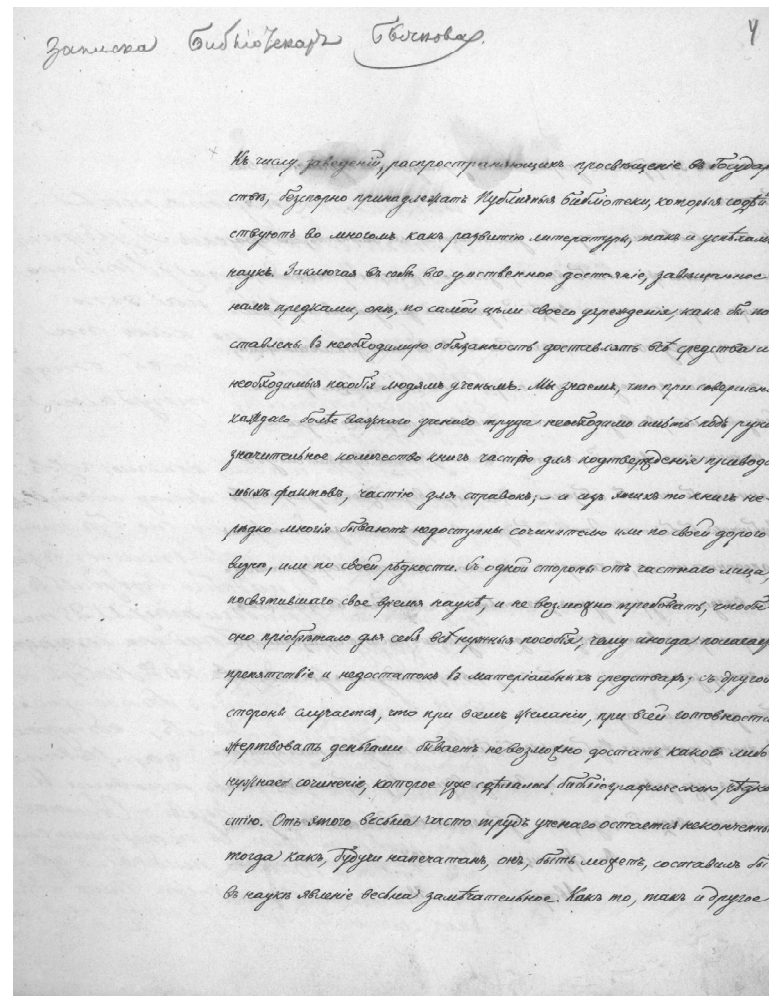 Записка Библіотекаря Бычкова.
4
Къ числу заведеній, распространяющихъ просвѣщеніе въ Государ
ствѣ, безспорно принадлежатъ Публичныя библіотеки, которыя содѣй
ствуютъ во многомъ какъ развитію литературы, такъ и успѣхамъ
наукъ. Заключая въ себѣ все умственное достояніе, завѣщанное
намъ предками, онѣ, по самой цѣли своего учрежденія, какъ бы по
ставлены въ необходимую обязанность доставлять всѣ средства и
необходимыя пособія людямъ ученымъ. Мы знаемъ, что при совершен
каждаго болѣе важнаго ученаго труда необходимо имѣть подъ руко
значительное количество книгъ частію для подтвержденія приводи
мыхъ фактовъ, частію для справокъ; – и изъ этихъ то книгъ не-
рѣдко многія бываютъ недоступны сочинителю или по своей дорого
визнѣ, или по своей рѣдкости. Съ одной стороны отъ частнаго лица,
посвятившаго свое время наукѣ, и не возможно требовать, чтобы
оно пріобрѣтало для себя всѣ нужныя пособія, чему иногда полагаетъ
препятствіе и недостатокъ въ матеріальныхъ средствахъ; съ другой
стороны случается, что при всемъ желаніи, при всей готовности
жертвовать деньгами бываетъ невозможно достать какое либо
нужное сочиненіе, которое уже сдѣлалось библіографическою рѣдко
стію. Отъ этого весьма часто трудъ ученаго остается неконченнымъ
тогда какъ, будучи напечатанъ, онъ, быть можетъ, составилъ бы
въ наукѣ явленіе весьма замѣчательное. Какъ то, такъ и другое